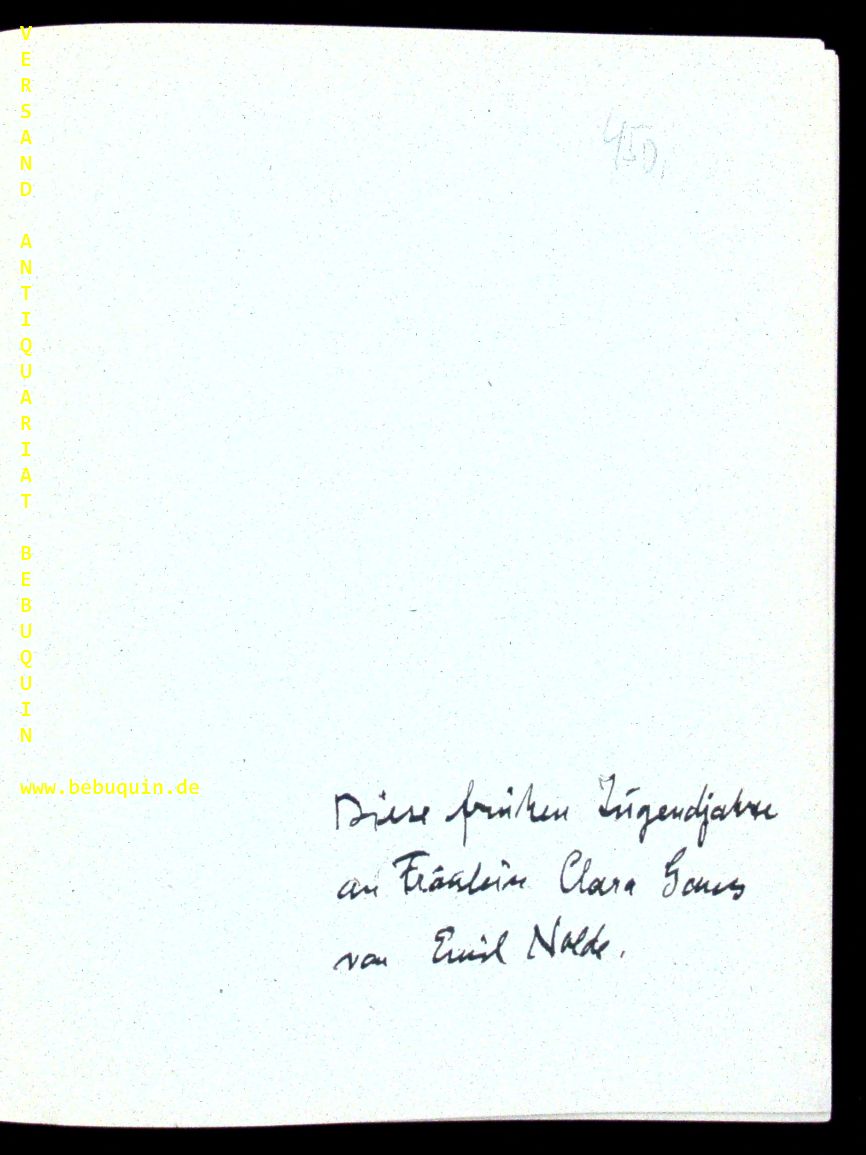 VERSAND ANTIQUARIAT BEBUQUIN
www.bebuquin.de
450,
Diese frühen Jugendjahre
an Fräulein Clara
von Emil Nolde.